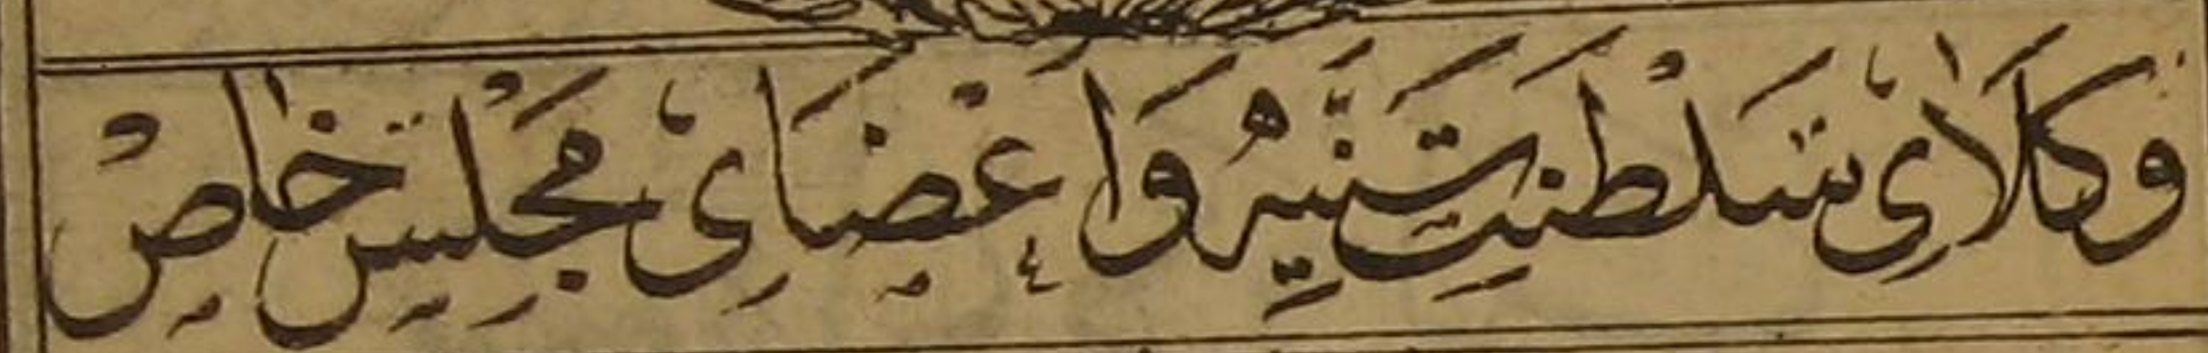 وكلای سلطنت سنیه و اعضای مجلس خاص